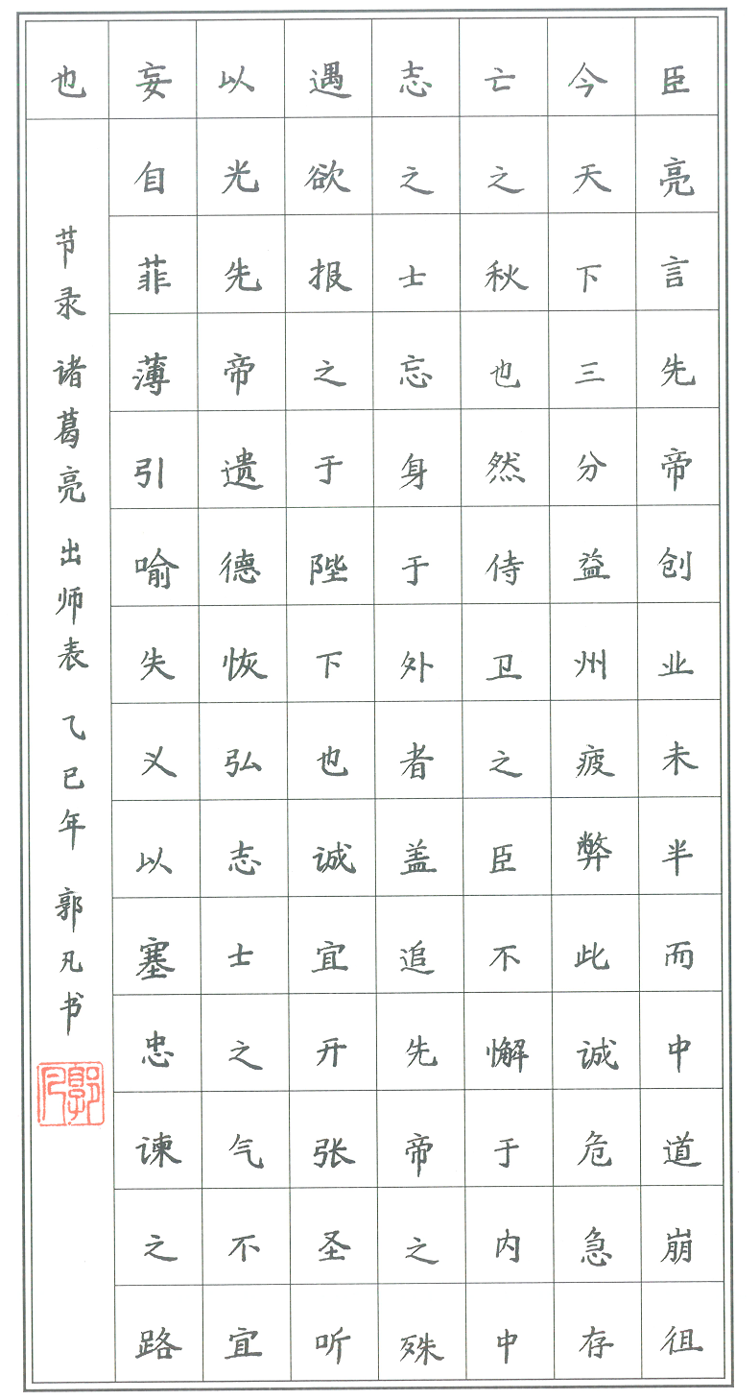 臣亮言先帝创业未半而中道崩徂
今天下三分益州疲弊此诚危急存
亡之秋也然侍卫之臣不懈于内中
志之士忘身于外者盖追先帝之殊
遇欲报之于陛下也诚宜开张圣听
以光先帝遗德恢弘志士之气不宜
妄自菲薄引喻失义以塞忠谏之路
也
节录 诸葛亮 出师表 乙巳年 郭凡书
郭凡